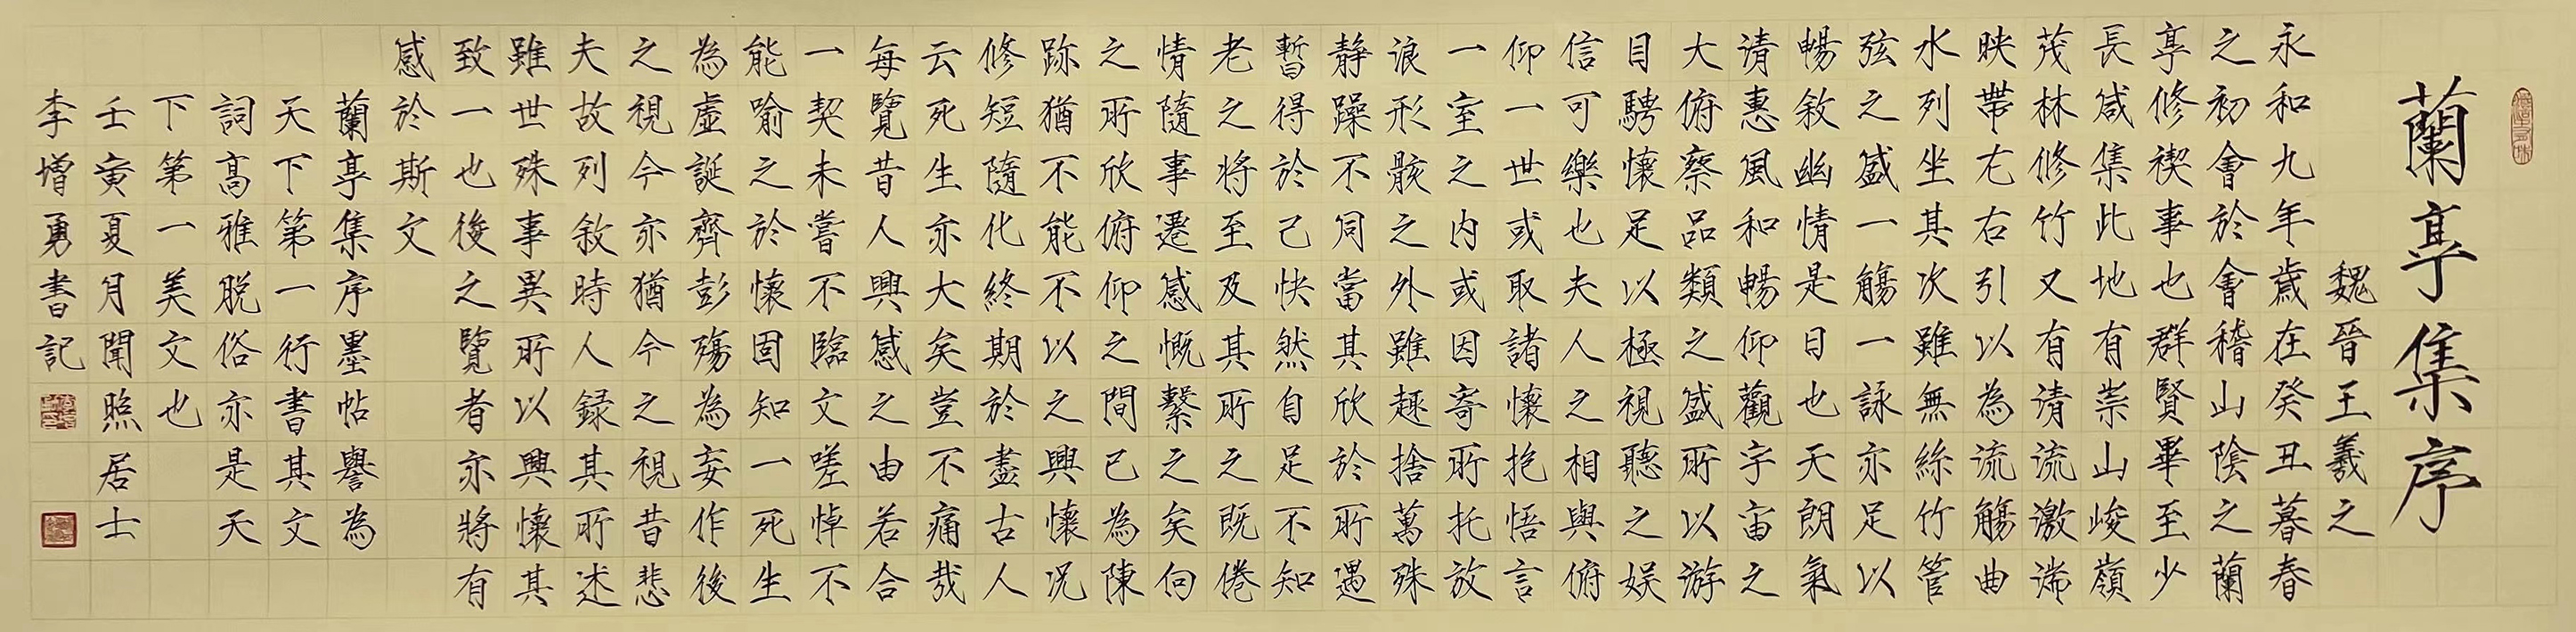 蘭亭集序
魏晉王羲之
永和九年歲在癸丑暮春
之初會於會稽山陰之蘭
亭修禊事也群賢畢至少
長咸集此地有崇山峻嶺
茂林修竹又有清流激湍
映帶左右引以為流觴曲
水列坐其次雖無絲竹管
弦之盛一觴一詠亦足以
暢敘幽情是日也天朗氣
清惠風和暢仰觀宇宙之
大俯察品類之盛所以游
目騁懷足以極視聽之娛
信可樂也夫人之相與俯
仰一世或取諸懷抱悟言
一室之內或因寄所托放
浪形骸之外雖趣捨萬殊
靜躁不同當其欣於所遇
暫得於己快然自足不知
老之將至及其所之既倦
情隨事遷感慨繫之矣向
之所欣俯仰之間已為陳
跡猶不能不以之興懷況
修短隨化終期於盡古人
云死生亦大矣豈不痛哉
每覽昔人興感之由若合
一契未嘗不臨文嗟悼不
能喻之於懷固知一死生
為虛誕齊彭殤為妄作後
之視今亦猶今之視昔悲
夫故列敘時人錄其所述
雖世殊事異所以興懷其
致一也後之覽者亦將有
感於斯文
蘭亭集序墨帖譽為
天下第一行書其文
詞高雅脫俗亦是天
下第一美文也
壬寅夏月聞照居士
李增勇書記